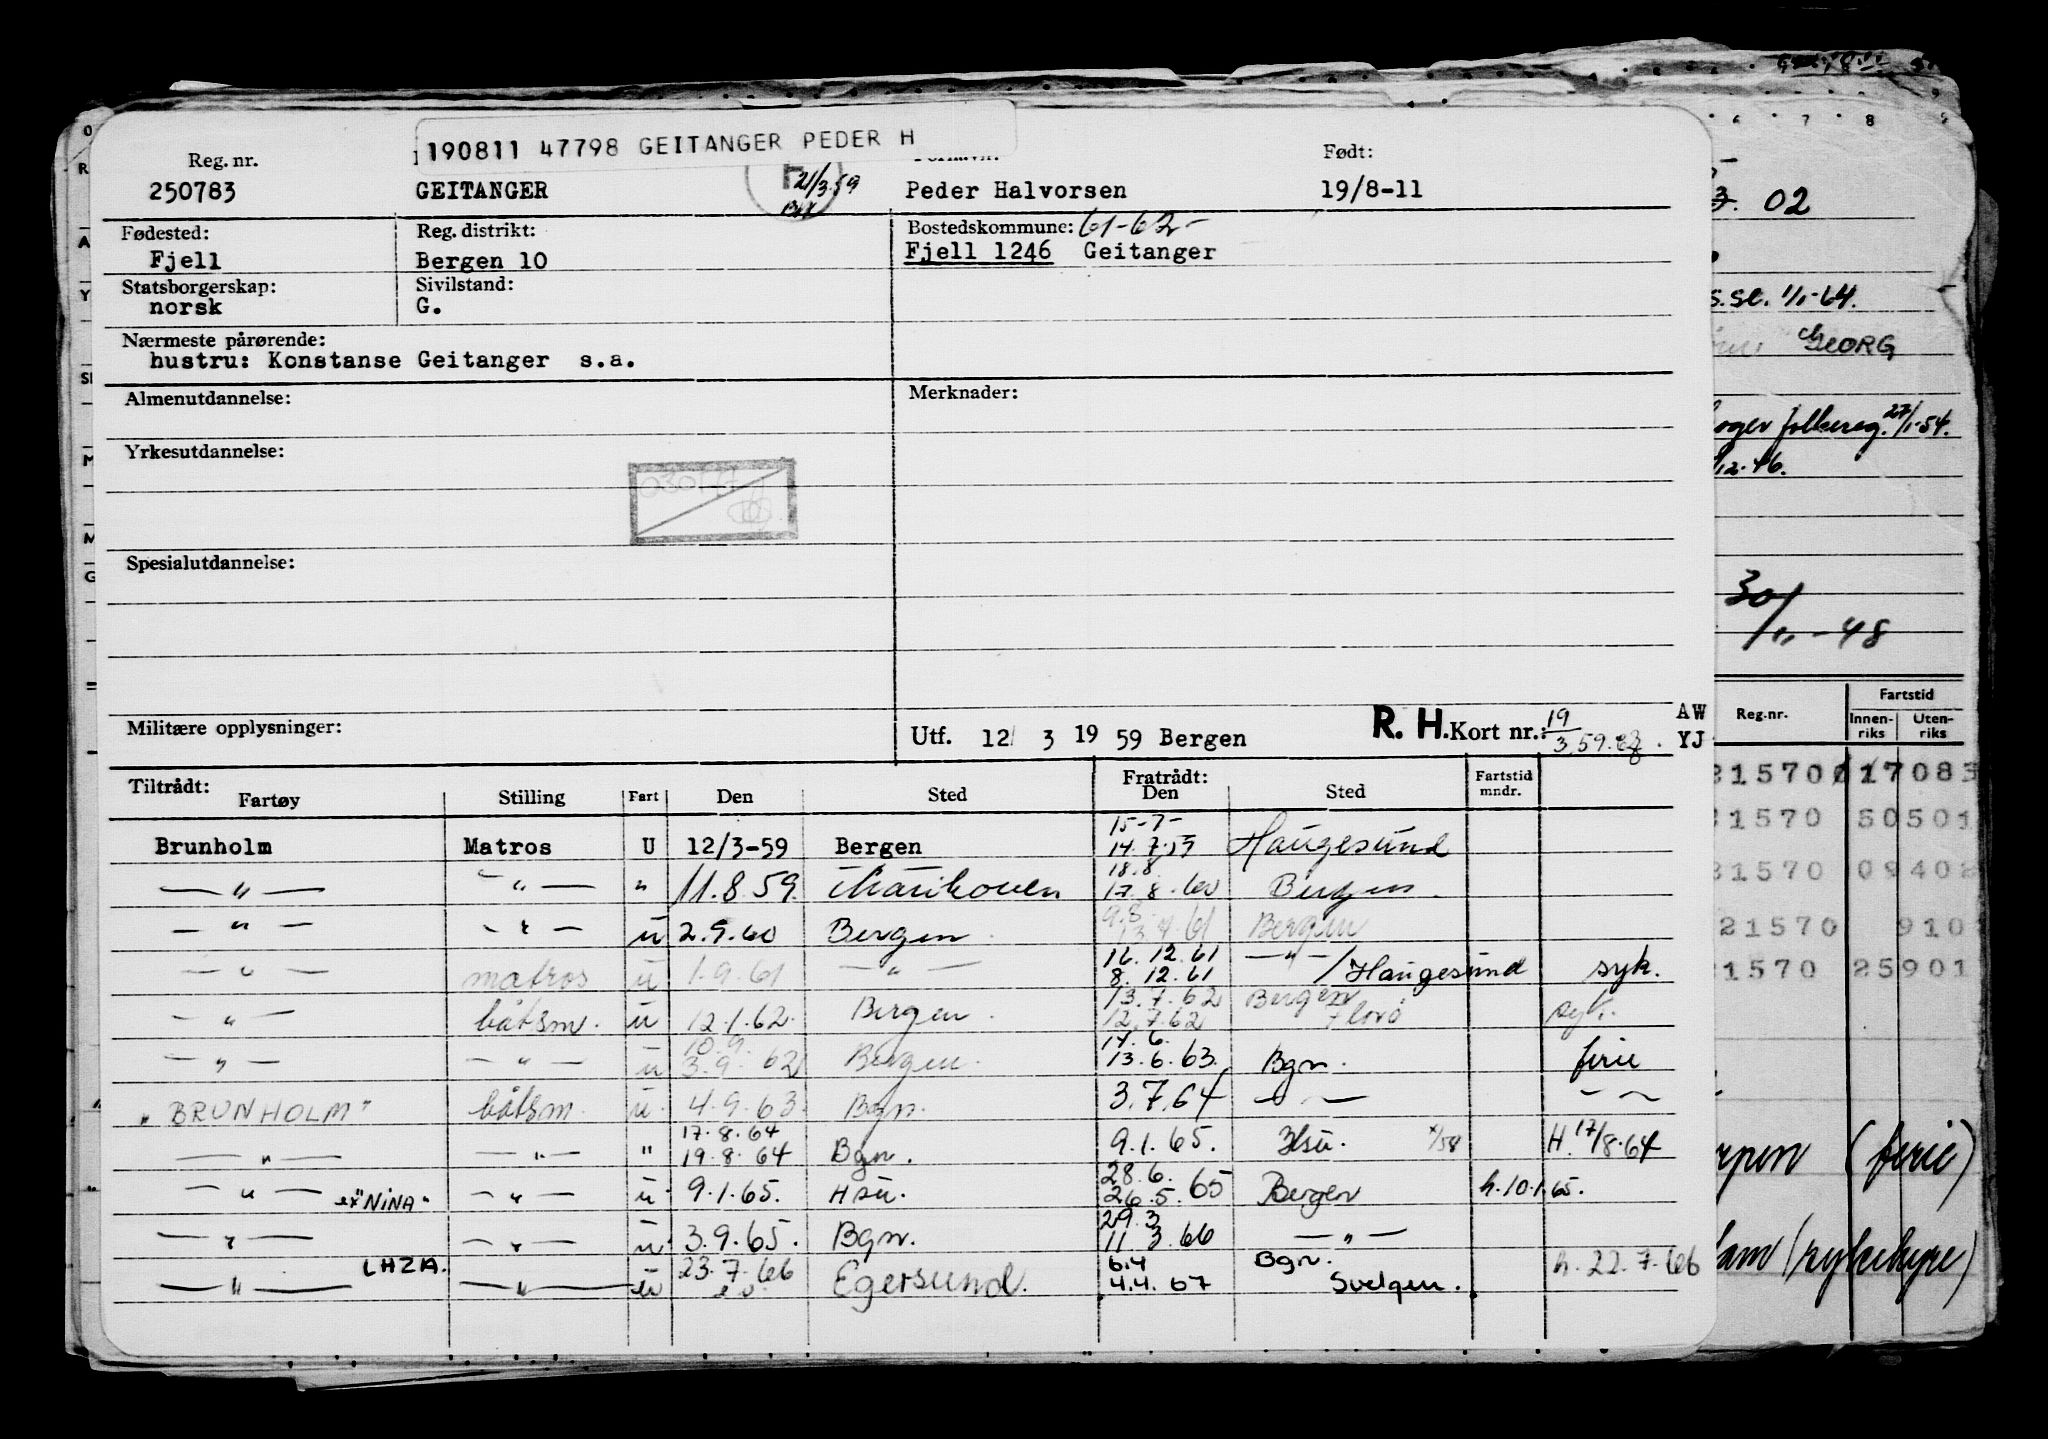 190811 47798 GEITANGER PEDER H
Reg. nr. Født:
250783 GEITANGER 21/3.59 Peder Halvorsen 19/8-11
Fødested: Reg. distrikt: Bostedskommune: 61-62-
Fjell Bergen 10 Fjell 1246 Geitanger
Statsborgerskap: Sivilstand:
norsk G.
Nærmeste pårørende:
hustru: Konstanse Geitanger s.a.
Almenutdannelse: Merknader:
Yrkesutdannelse:
Spesialutdannelse:
Militære opplysninger: Utf. 12/ 3 19 59 Bergen R. H. Kort nr.: 19/3 59. AW YJ
Tiltrådt: Fratrådt: Fartstid
Fartøy Stilling Fart Den Sted Den Sted mndr.
15-7-
Brunholm Matros U 12/3-59 Bergen 14.7.59 Haugesund
18.8.
— " — — " — " 11.8.59. 17.8.60 Bergen.
9.8.
— " — — " — u 2.9.60 Bergen 61 Bergen
16.12.61 — " —
— " — matros u 1.9.61 — " — 8.12.61 / Haugesund syk.
13.7.62 Bergen
— " — båtsm. u 12.1.62. Bergen. 12.7.62 Florø syk.
10.9. 14.6.
— " — — " — u 3.9.62 Bergen. 13.6.63. Bgn. ferie
"BRUNHOLM" båtsm. u. 4.9.63. Bgn. 3.7.64 — " — — " —
17.8.64
— " — — " — " 19.8.64 Bgn. 9.1.65. Hsu. H. 17/8.64
28.6.
— " — ex "NINA" — " — u 9.1.65. Hsu. 26.5.65 Bergen h.10.1.65.
29.3
— " — — " — u 3.9.65. Bgn. 11 3.66 — " —
LHZA. 23.7.66 6.4 Bgn.
— " — — " — u Egersund. 4.4.67 Svelgen. h. 22.7.66
02
1/1-64.
GEORG
27/1-54.
12.46.
30/11-48
Reg.nr. Fartstid
Innenriks Utenriks
21570 17083
1570 50501
1570 09402
21570 910
1570 25901
(ferie)